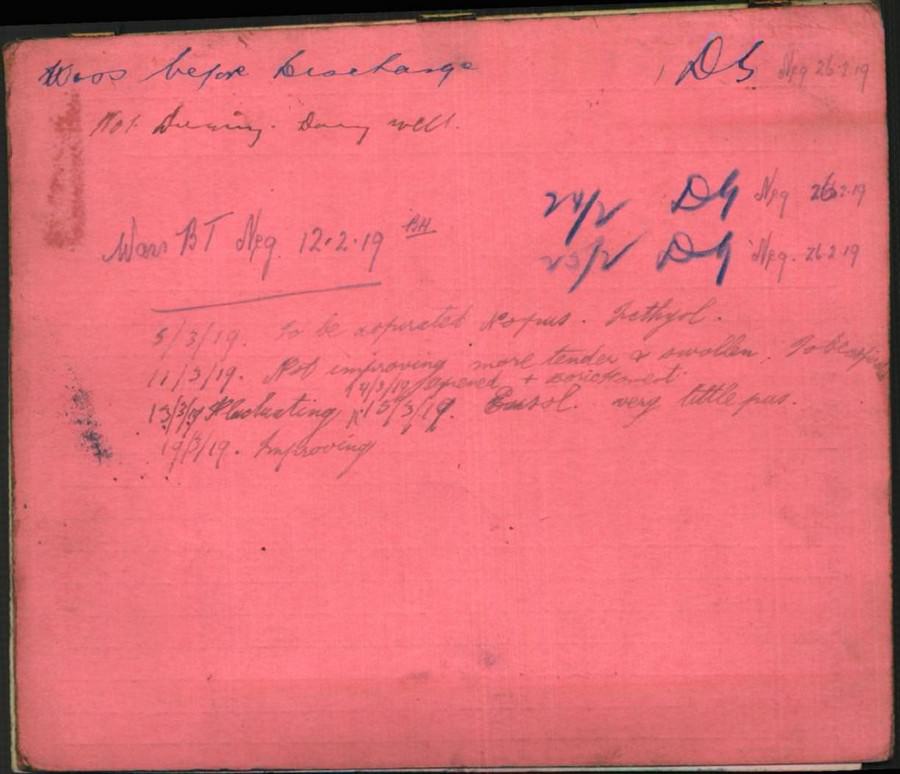 Wass before Discharge
DG Neg 26.2.19
Not . Doing well.
24/2 DG Neg 26.2.19
Wass BT Neg. 12.2.19 BH
25/2 DG Neg. 26.2.19
5/3/19. To be aspirated No pus. Icthyol.
11/3/19. Not improving more tender & swollen. To be
14/3/19 Opened +
13/3/19 Fluctuating 15/3/19. Eusol. very little pus.
19/3/19. Improving